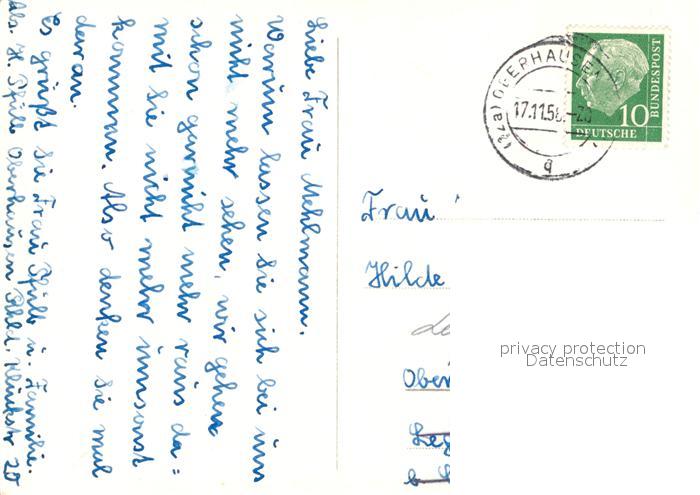 Liebe Frau Mehlmann.
Warum lassen Sie sich bei uns
nicht mehr sehen, wir gehen
schon garnicht mehr raus da=
mit sie nicht mehr umsonst
kommen. Also denken Sie mal
daran.
Es grüßt Sie Frau Pfüll u. Familie.
Abs. H. Pfüll Oberhausen Rhld.
20
(22a) OBERHAUSEN
17.11.56.-20
g
10
DEUTSCHE
BUNDESPOST
Frau
Hilde
Ober
privacy protection
Datenschutz